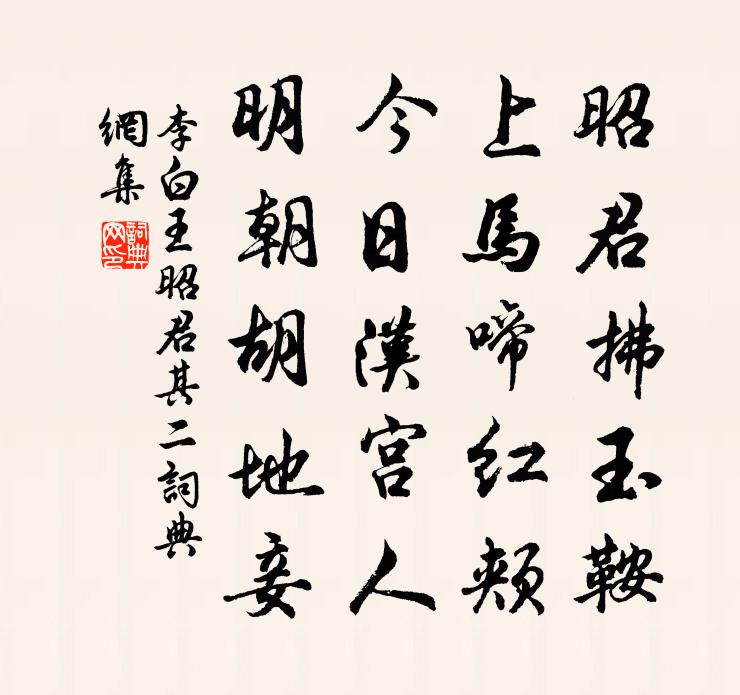 昭君拂玉鞍
上馬啼紅頰
今日漢宮人
明朝胡地妾
李白王昭君其二詞典
網集
詞典
网印